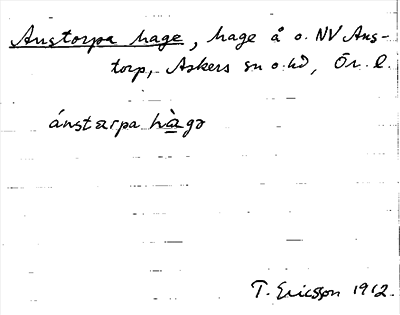 Anstorpa hage, hage å o. NV Ans-
torp, Askers sn o. hd, Ör. l.
ánstarpa hàgə
T. Ericsson 1912.